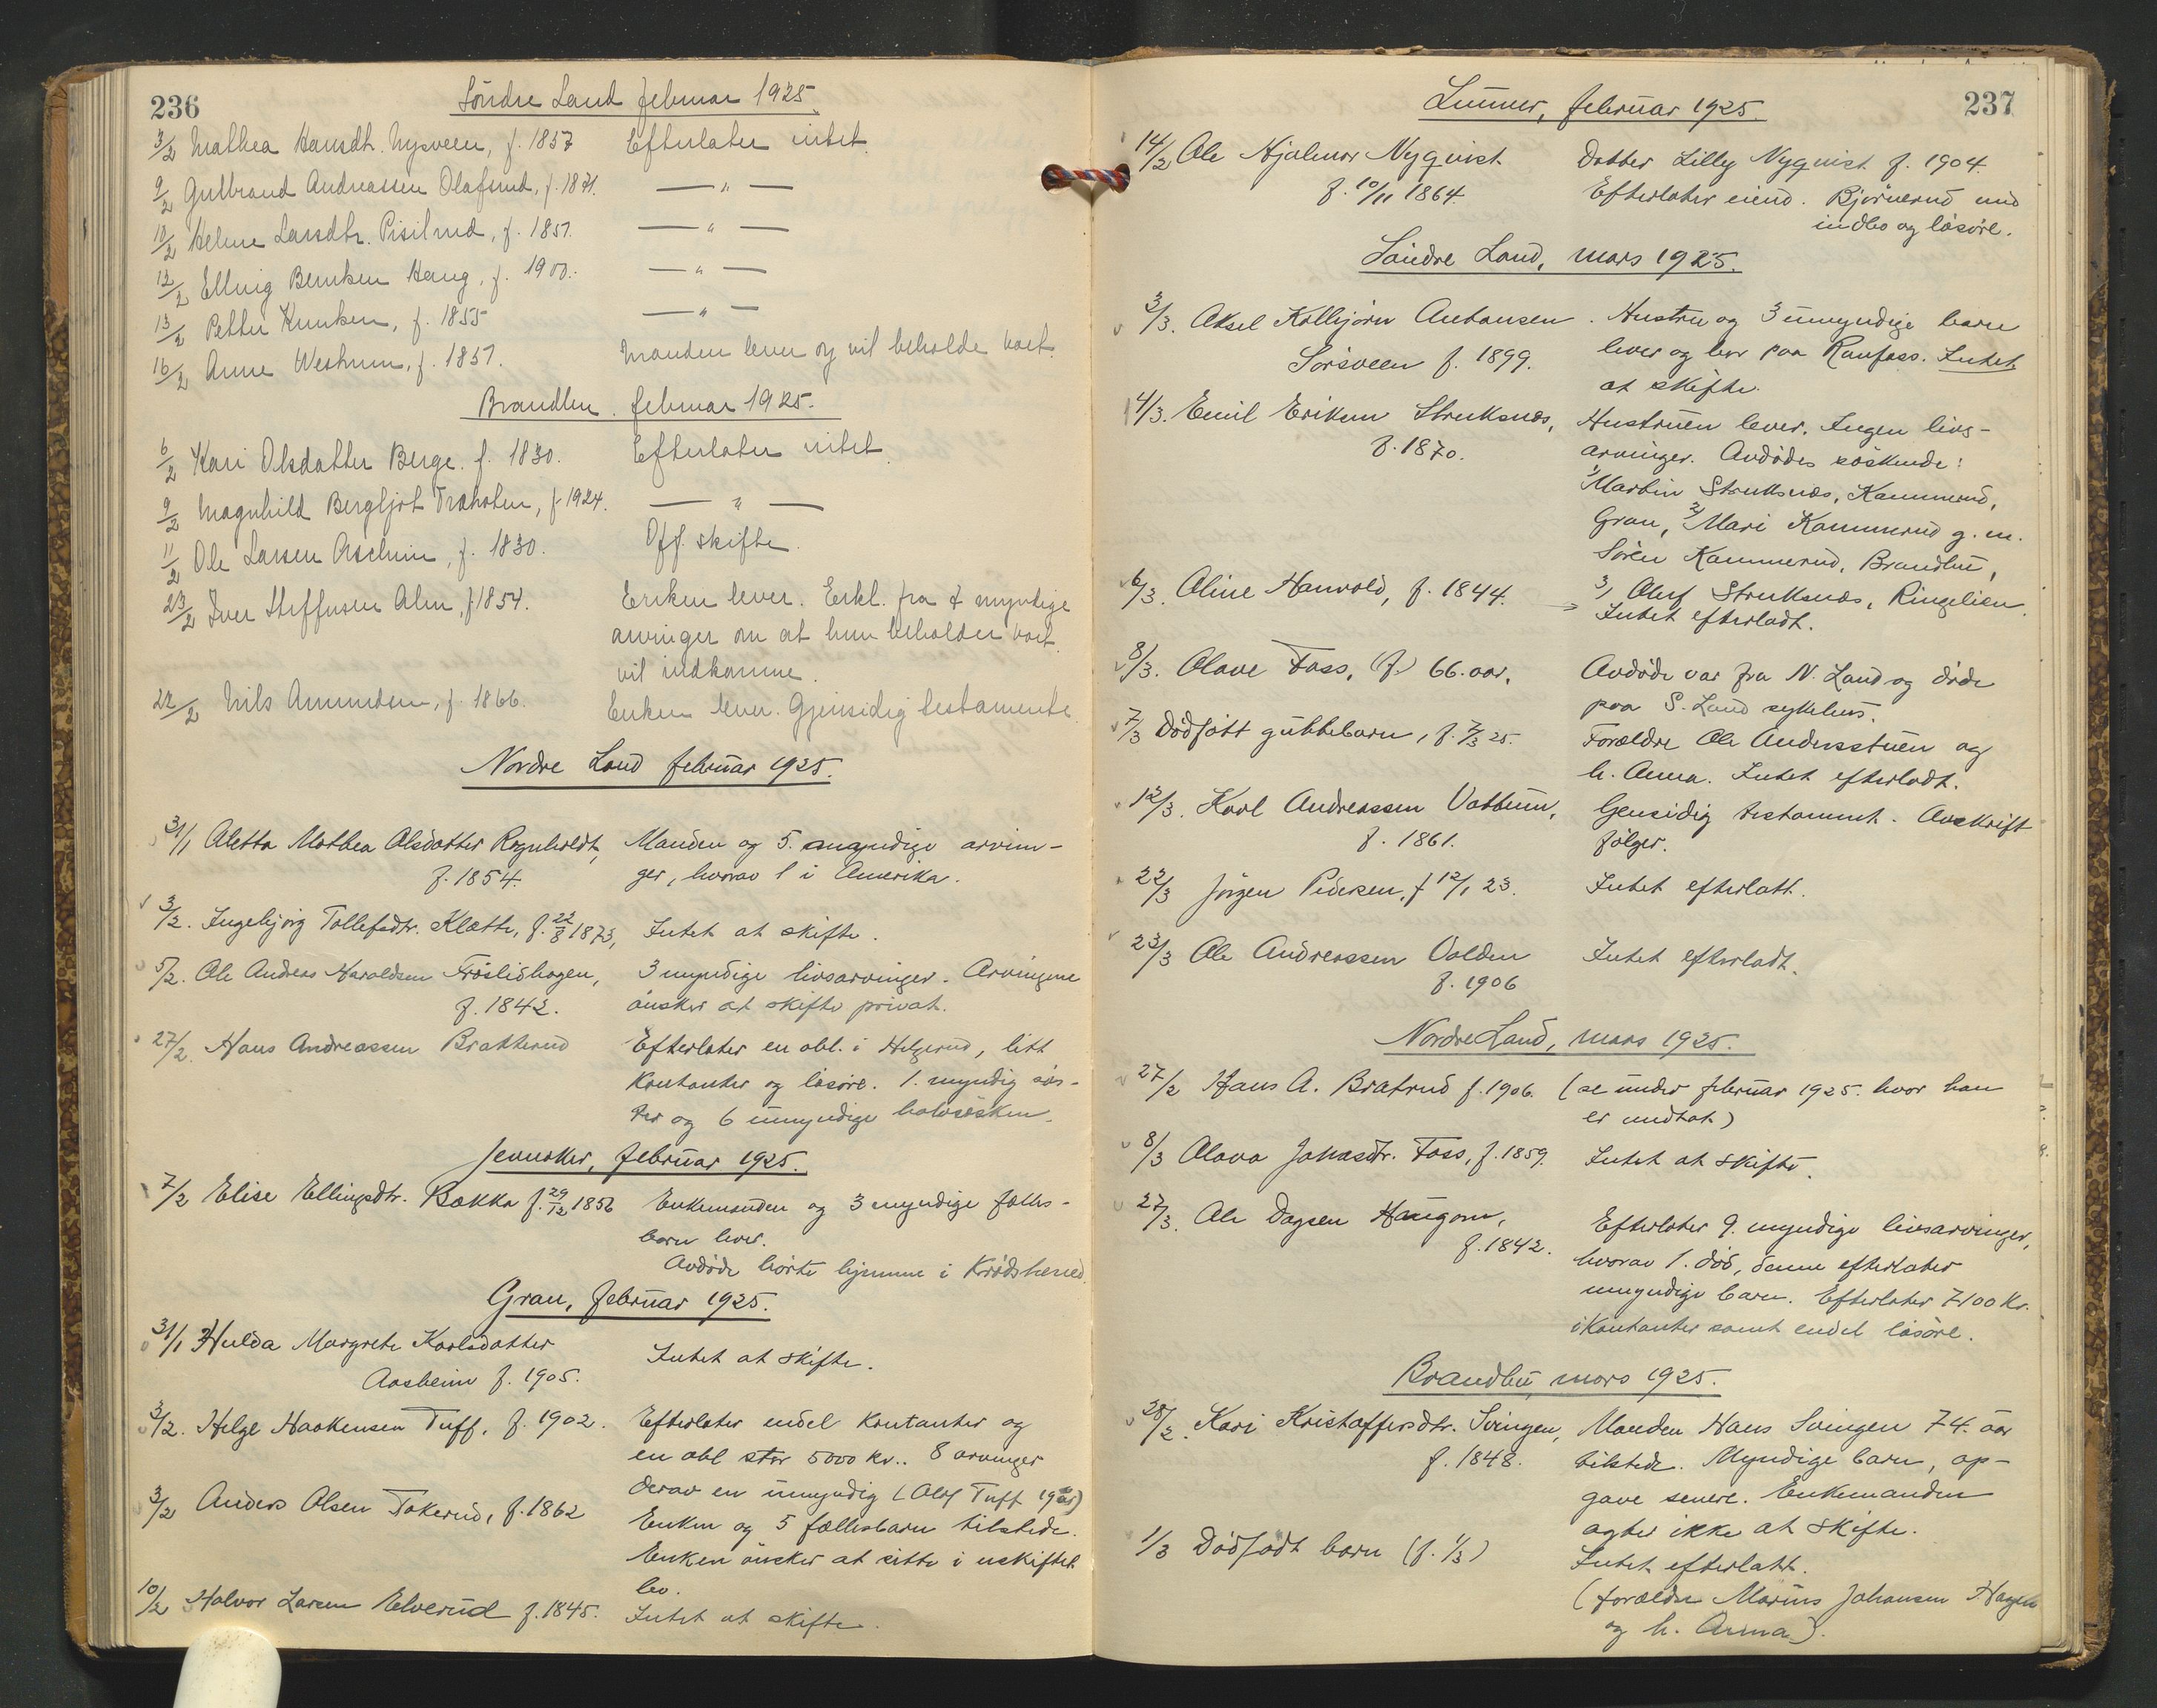 236
Söndre Land februar 1925.
3/2 Mathea Hansdtr. Nysveen, f. 1857 Efterlater intet.
9/2 Gulbrand Andreassen Olafsrud, f. 1871. — " —
10/2 Helene Larsdtr. Pisilrud, f. 1851. — " —
12/2 Haug, f. 1900. — " —
13/2 Petter Knutsen, f. 1855 — " —
16/2 Anne Westrum, f. 1851. Manden lever og vil beholde boet.
Brandbu. februar 1925.
6/2 Kari Olsdatter Berge. f. 1830. Efterlater intet.
9/2 Magnhild Bergljot, f. 1924. — " —
11/2 Ole Larsen Aschim, f. 1830. Off. skifte.
23/2 Iver Steffensen Alm, f. 1854. Enken lever. Erkl. fra myndige
arvinger om at hun beholder boet.
vil indkomme.
22/2 Nils Amundsen, f. 1866. Enken lever. Gjensidig testamente.
Nordre Land februar 1925.
31/1 Aletta Mathea Olsdatter Rognholdt, Manden og 5. myndige arvin-
f. 1854. ger, hvorav 1 i Amerika.
3/2. Ingebjörg Tollefsdtr. Klætte, f. 22/8 1873, Intet at skifte.
5/2. Ole Andreas Haraldsen Fröslidhagen, 3 myndige livsarvinger. Arvingene
f. 1842. önsker at skifte privat.
27/2. Hans Andreassen Bratterud Efterlater en obl. i Helgerud, litt
kontanter og lösöre. 1. myndig sös-
ter og 6 umyndige halvsösken.
Jevnaker, februar 1925.
7/2 Elise Ellingsdtr. Bakka f. 29/12 1856 Enkemanden og 3 myndige fælles-
barn lever.
Avdöde hörte hjemme i Krödsherred.
Gran, februar 1925.
31/1 Hulda Margrete Karlsdatter
Aasheim f. 1905. Intet at skifte.
3/2. Helge Haakensen Tuff, f. 1902. Efterlater endel kontanter og
en obl stor 5000 kr.. 8 arvinger
derav en umyndig (Olaf Tuff 19 år)
3/2 Anders Olsen Tokerud, f. 1862 Enken og 5 fællesbarn tilstede.
Enken önsker at sitte i uskiftet
bo.
10/2 Halvor Larsen Elverud f. 1845. Intet at skifte.
237
Lunner, februar 1925.
14/2 Ole Hjalmar Nyqvist Datter Lilly Nyqvist f. 1904.
f. 10/11 1864. Efterlater eiend. Björnerud med
indbo og lösöre.
Söndre Land, mars 1925.
3/3. Aksel Kolbjörn Antonsen. Hustru og 3 umyndige barn
Sörsveen f. 1899. lever og bor paa Raufoss. Intet
at skifte.
4/3. Emil Eriksen Struksnæs, Hustruen lever. Ingen livs-
f. 1870. arvinger. Avdödes söskende:
1) Martin Struksnæs, Kammerud,
Gran, 2) Mari Kammerud g. m.
Sören Kammerud, Brandbu,
3) Oluf Struksnæs, Ringelien.
6/3. Oline Hanvold, f. 1844. Intet efterladt.
8/3. Olave Foss, (f.) 66. aar, Avdöde var fra N. Land og döde
paa S. Land sykehus.
7/3 Dödfött guttebarn, f. 7/3 25. Forældre Ole Andersstuen og
h. Anna. Intet efterladt.
12/3. Karl Andreassen Vattum, Gensidig testament. Avskrift
f. 1861. fölger.
22/3 Jörgen Pedersen, f 12/1 23. Intet efterlatt.
23/3 Ole Andreassen Volden Intet efterladt.
f. 1906
Nordre Land, mars 1925.
27/2 Hans A. Bratrud f. 1906. (se under februar 1925. hvor han
er mottat)
8/3 Olava Johasdtr. Foss, f. 1859. Intet at skifte.
27/3. Ole Dagsen Haugom, Efterlater 9. myndige livsarvinger,
f. 1842. hvorav 1. död, denne efterlater
umyndige barn. Efterlater 7100 kr.
i kontanter samt endel lösöre.
Brandbu, mars 1925.
28/2. Kari Kristoffersdtr. Svingen, Manden Hans Svingen 74. aar
f. 1848. tilstede. Myndige barn, op-
gave senere. Enkemanden
agter ikke at skifte.
1/3 Dödfödt barn (f. 1/3) Intet efterlatt.
(forældre Marius Johansen Hagen
og h. Anna).